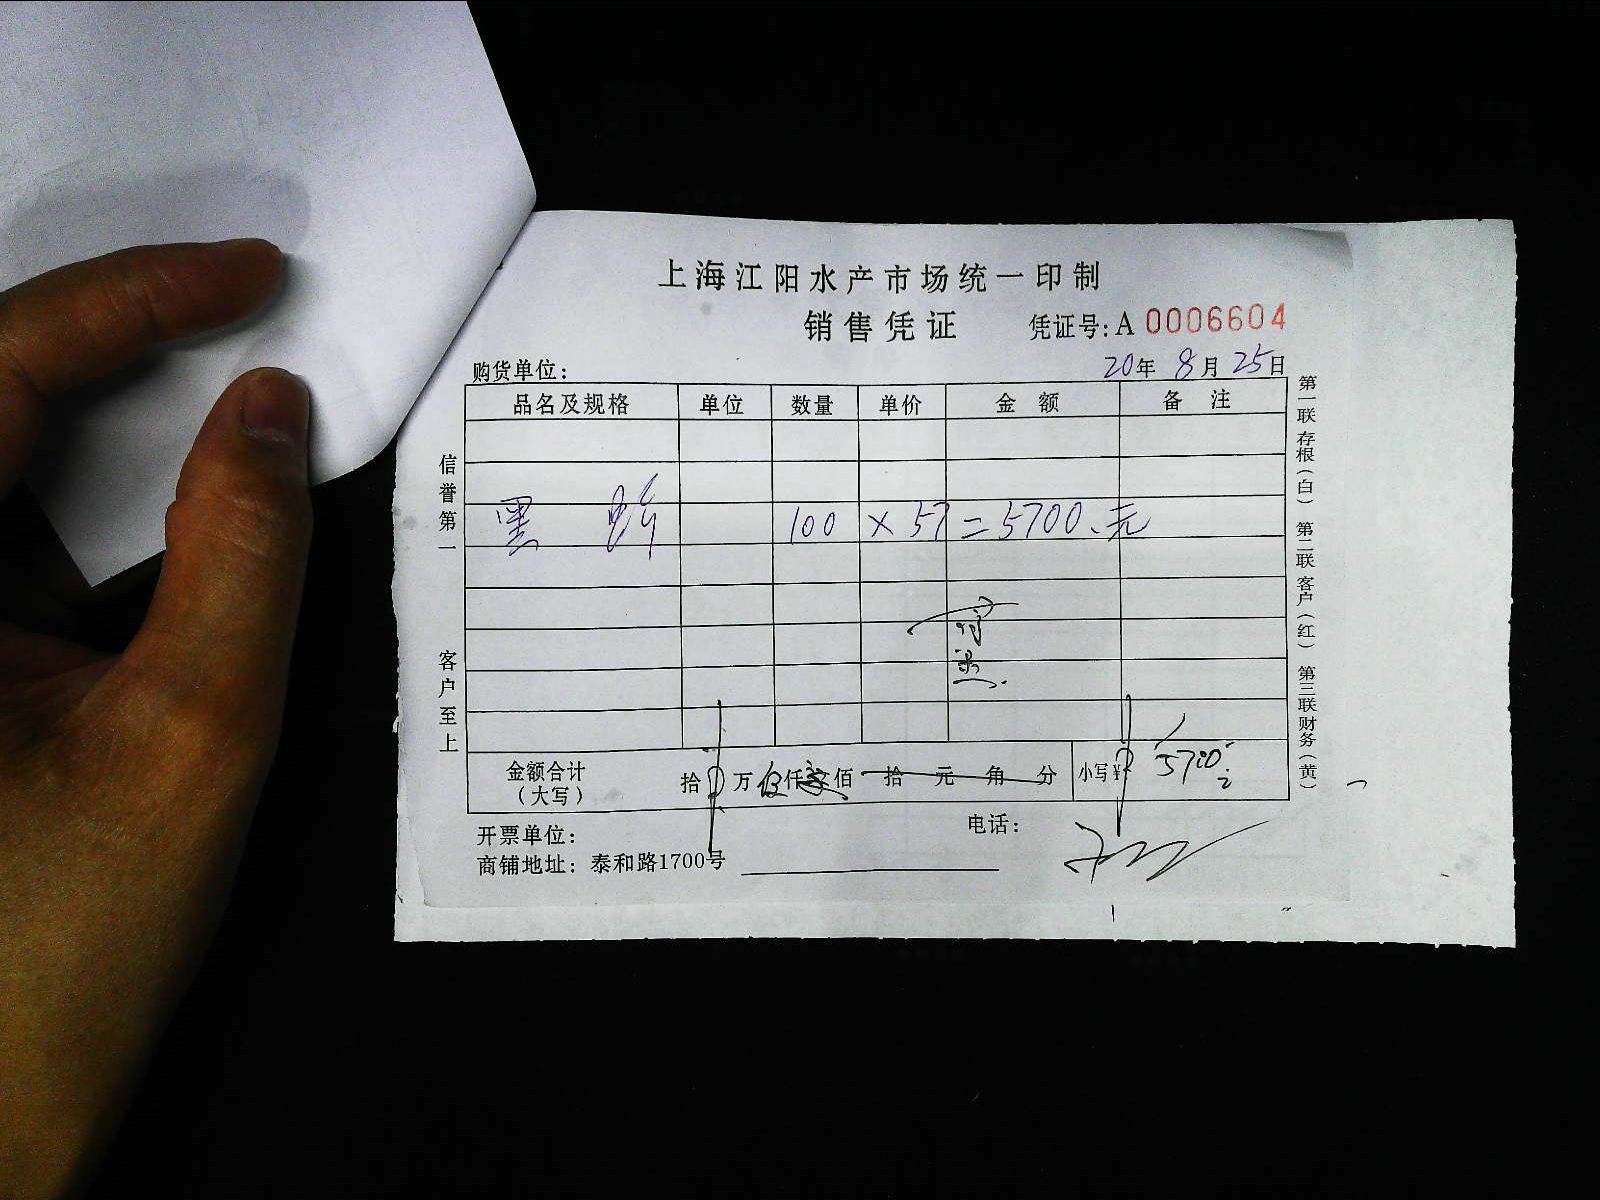 上海江阳水产市场统一印制
销售凭证 凭证号:A 0006604
购货单位: 20年 8月 25日
品名及规格 单位 数量 单价 金额 备注
黑 100 × 57 = 5700.元
金额合计(大写) 拾 万 伍仟柒佰 拾 元 角 分 小写¥ 5700
开票单位: 电话:
商铺地址: 泰和路1700号
信誉第一 客户至上
第一联存根(白) 第二联客户(红) 第三联财务(黄)